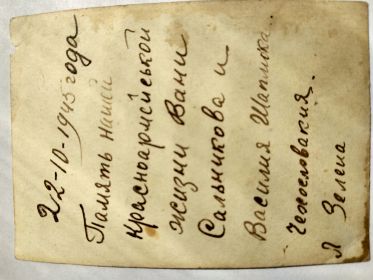 22-10-1945 года
Память нашей
красноармейськой
жизни Вани
Сальникова и
Василия
Чехословакия.
Я Зелена